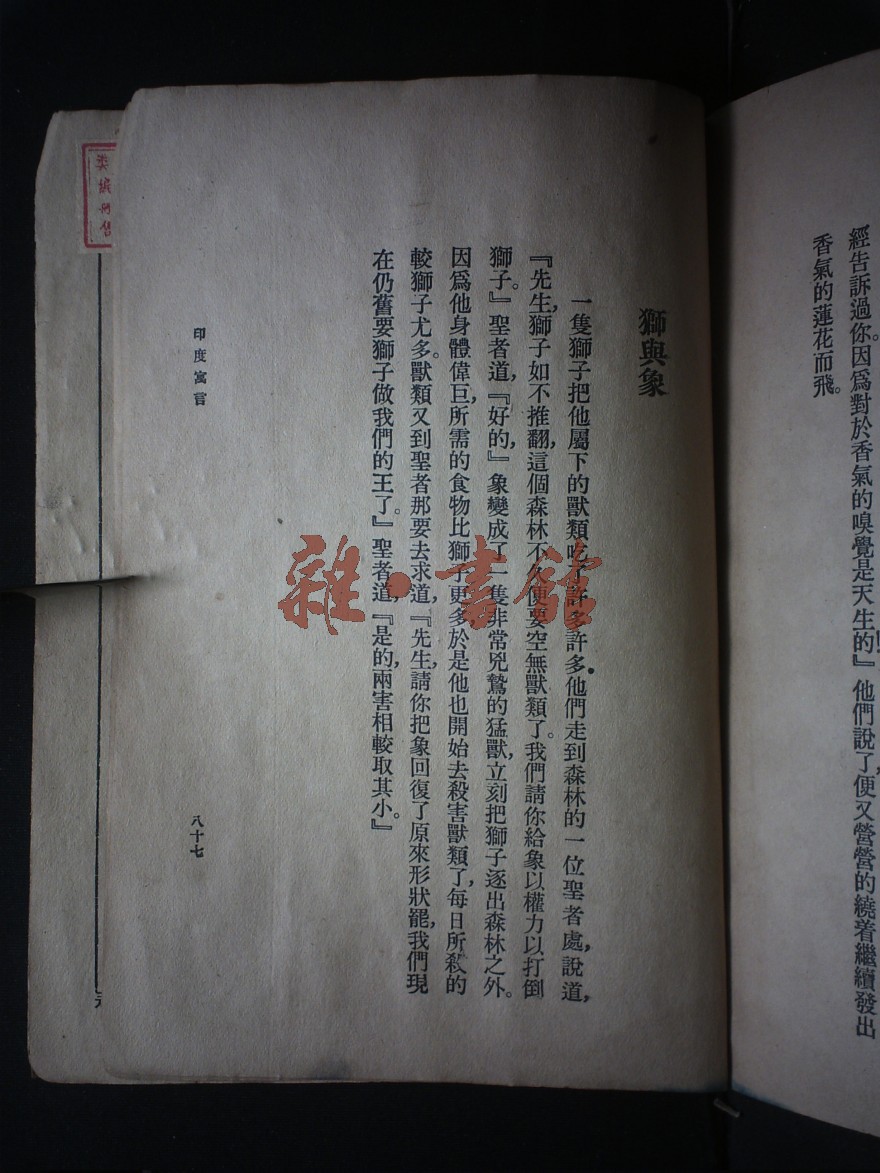 經告訴過你。因爲對於香氣的嗅覺是天生的』他們說了,便又營營的繞着繼續發出
香氣的蓮花而飛。
獅與象
一隻獅子把他屬下的獸類吃了許多許多。他們走到森林的一位聖者處,說道,
『先生,獅子如不推翻,這個森林不久便要空無獸類了。我們請你給象以權力以打倒
獅子。』聖者道,『好的,』象變成了一隻非常兇鷙的猛獸,立刻把獅子逐出森林之外。
因爲他身體偉巨,所需的食物比獅子更多,於是他也開始去殺害獸類了,每日所殺的
較獅子尤多。獸類又到聖者那要去求道,『先生,請你把象回復了原來形狀罷,我們現
在仍舊要獅子做我們的王了。』聖者道,『是的,兩害相較取其小。』
印度寓言
八十七
雜·書館